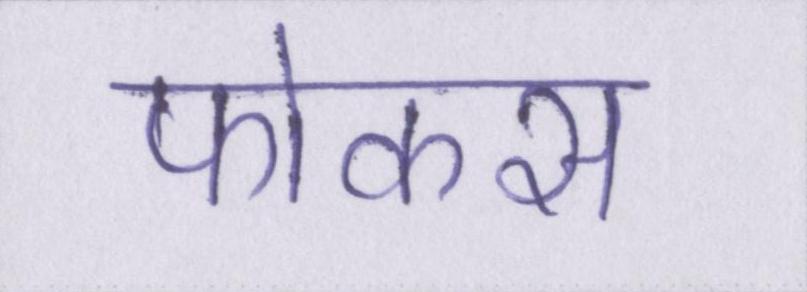 फोकस